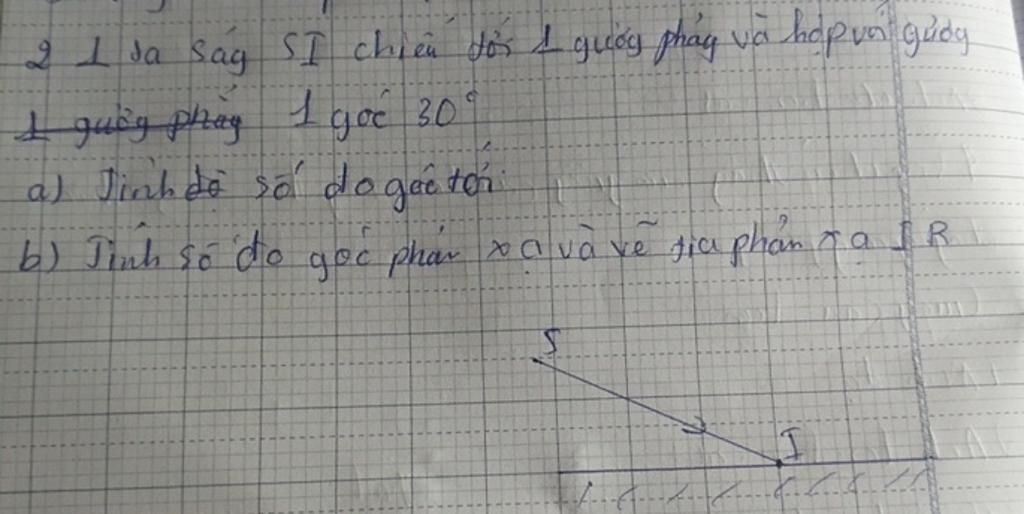 2 1 tia ság SI chiếu tới 1 gươg phág và hợp với gươg
1 gươg phẳg 1 góc 30°
a) Tính số đo góc tới
b) Tính số đo góc phản xạ và vẽ tia phản xạ IR
S
I